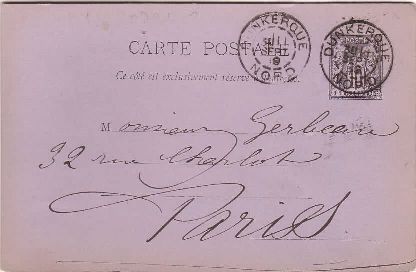 DUNKERQUE
NORD
DUNKERQUE
NORD
CARTE POSTALE
Ce côté est exclusivement réservé à l'adresse.
Monsieur Gerbeau
32 rue Charlot
Paris